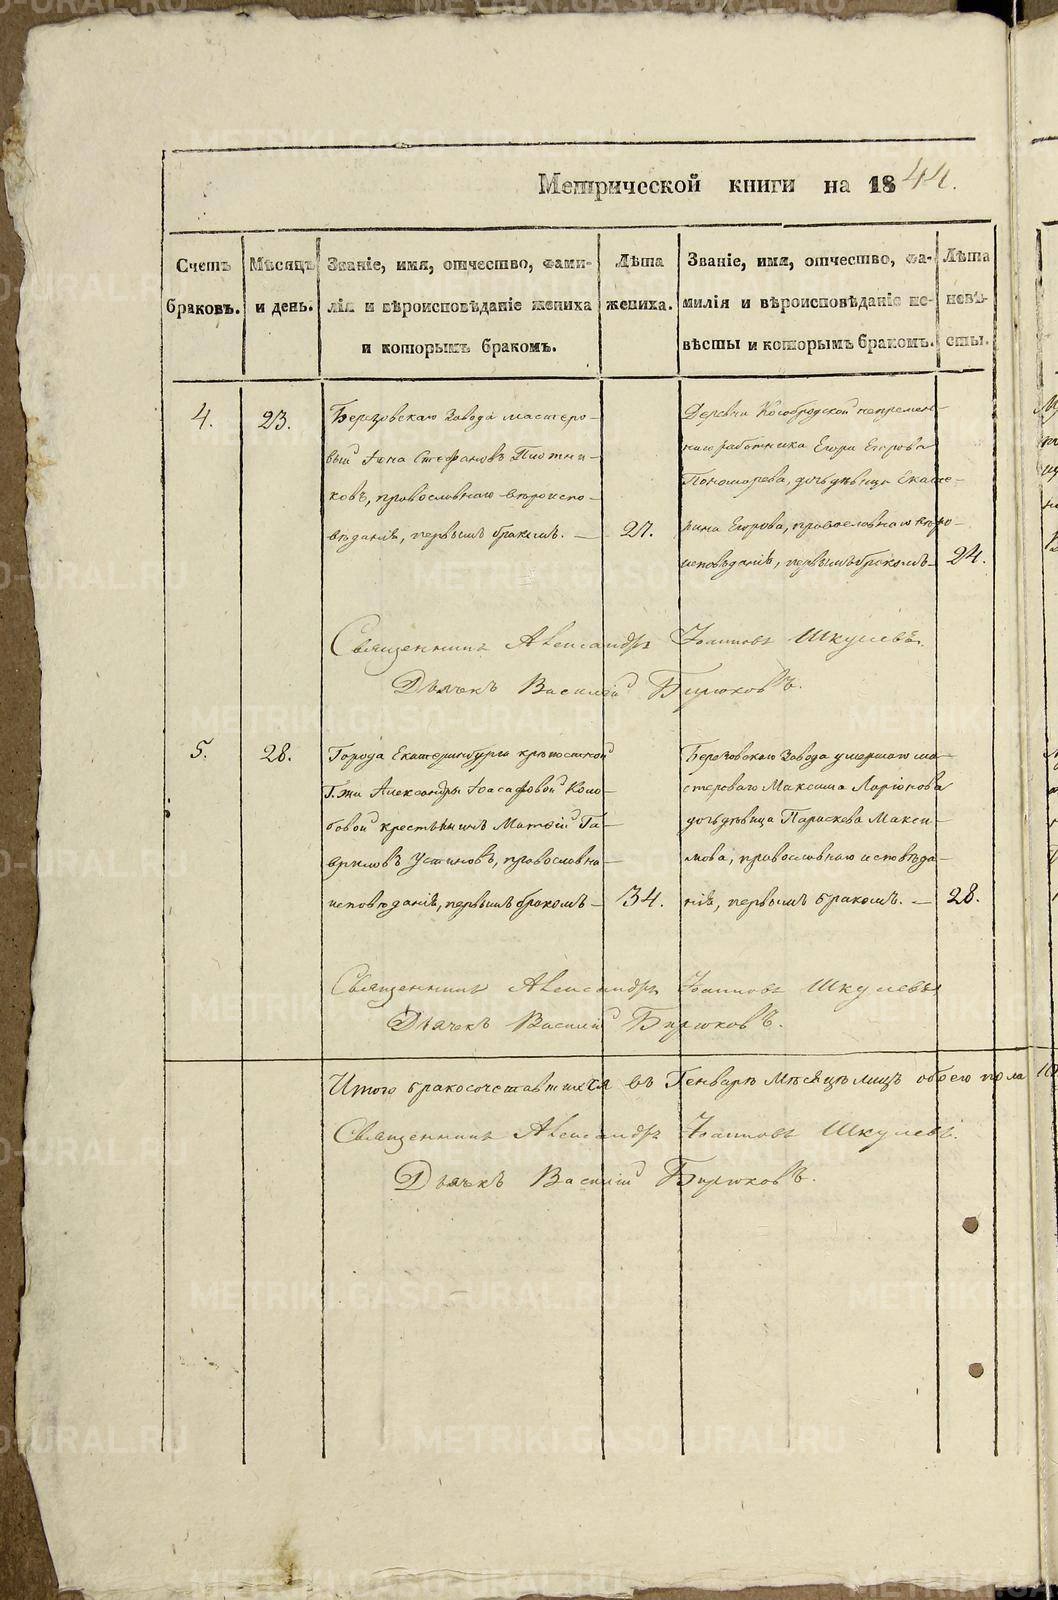 Метрической книги на 1844.
Счетъ браковъ.
Мѣсяцъ и день.
Званіе, имя, отчество, фами-
лія и вѣроисповѣданіе жениха
и которымъ бракомъ.
Лѣта
жениха.
Званіе, имя, отчество, фа-
милія и вѣроисповѣданіе не-
вѣсты и которымъ бракомъ.
Лѣта
невѣ-
сты.
4.
23.
Березовскаго Завода мастеро-
вый Іона Стефановъ Плотни-
ковъ, православнаго вѣроиспо-
вѣданія, первымъ бракомъ. —
27.
Деревни Кособродской непремен-
наго работника Егора Егорова
Пономарева, дочь дѣвица Екате-
рина Егорова, православнаго вѣро-
исповѣданія, первымъ бракомъ —
24.
Священникъ Александръ Іоанновъ Шкулевъ.
Дьячекъ Василій Бирюковъ.
5.
28.
Города Екатеринбурга крѣпостной
Г.жи Александры Іоасафовой Коло-
бовой крестьянинъ Матѳій Га-
вриловъ Устиновъ, православна-
исповѣданія, первымъ бракомъ —
34.
Березовскаго Завода умершаго ма-
стероваго Максима Ларіонова
дочь дѣвица Параскева Макси-
мова, православнаго исповѣда-
нія, первымъ бракомъ. —
28.
Священникъ Александръ Іоанновъ Шкулевъ
Дьячекъ Василій Бирюковъ.
Итого бракосочетавшихся въ Генварѣ мѣсяцѣ лицъ обоего пола 10
Священникъ Александръ Іоанновъ Шкулевъ.
Дьячекъ Василій Бирюковъ.
METRIKI.GASO-URAL.RU